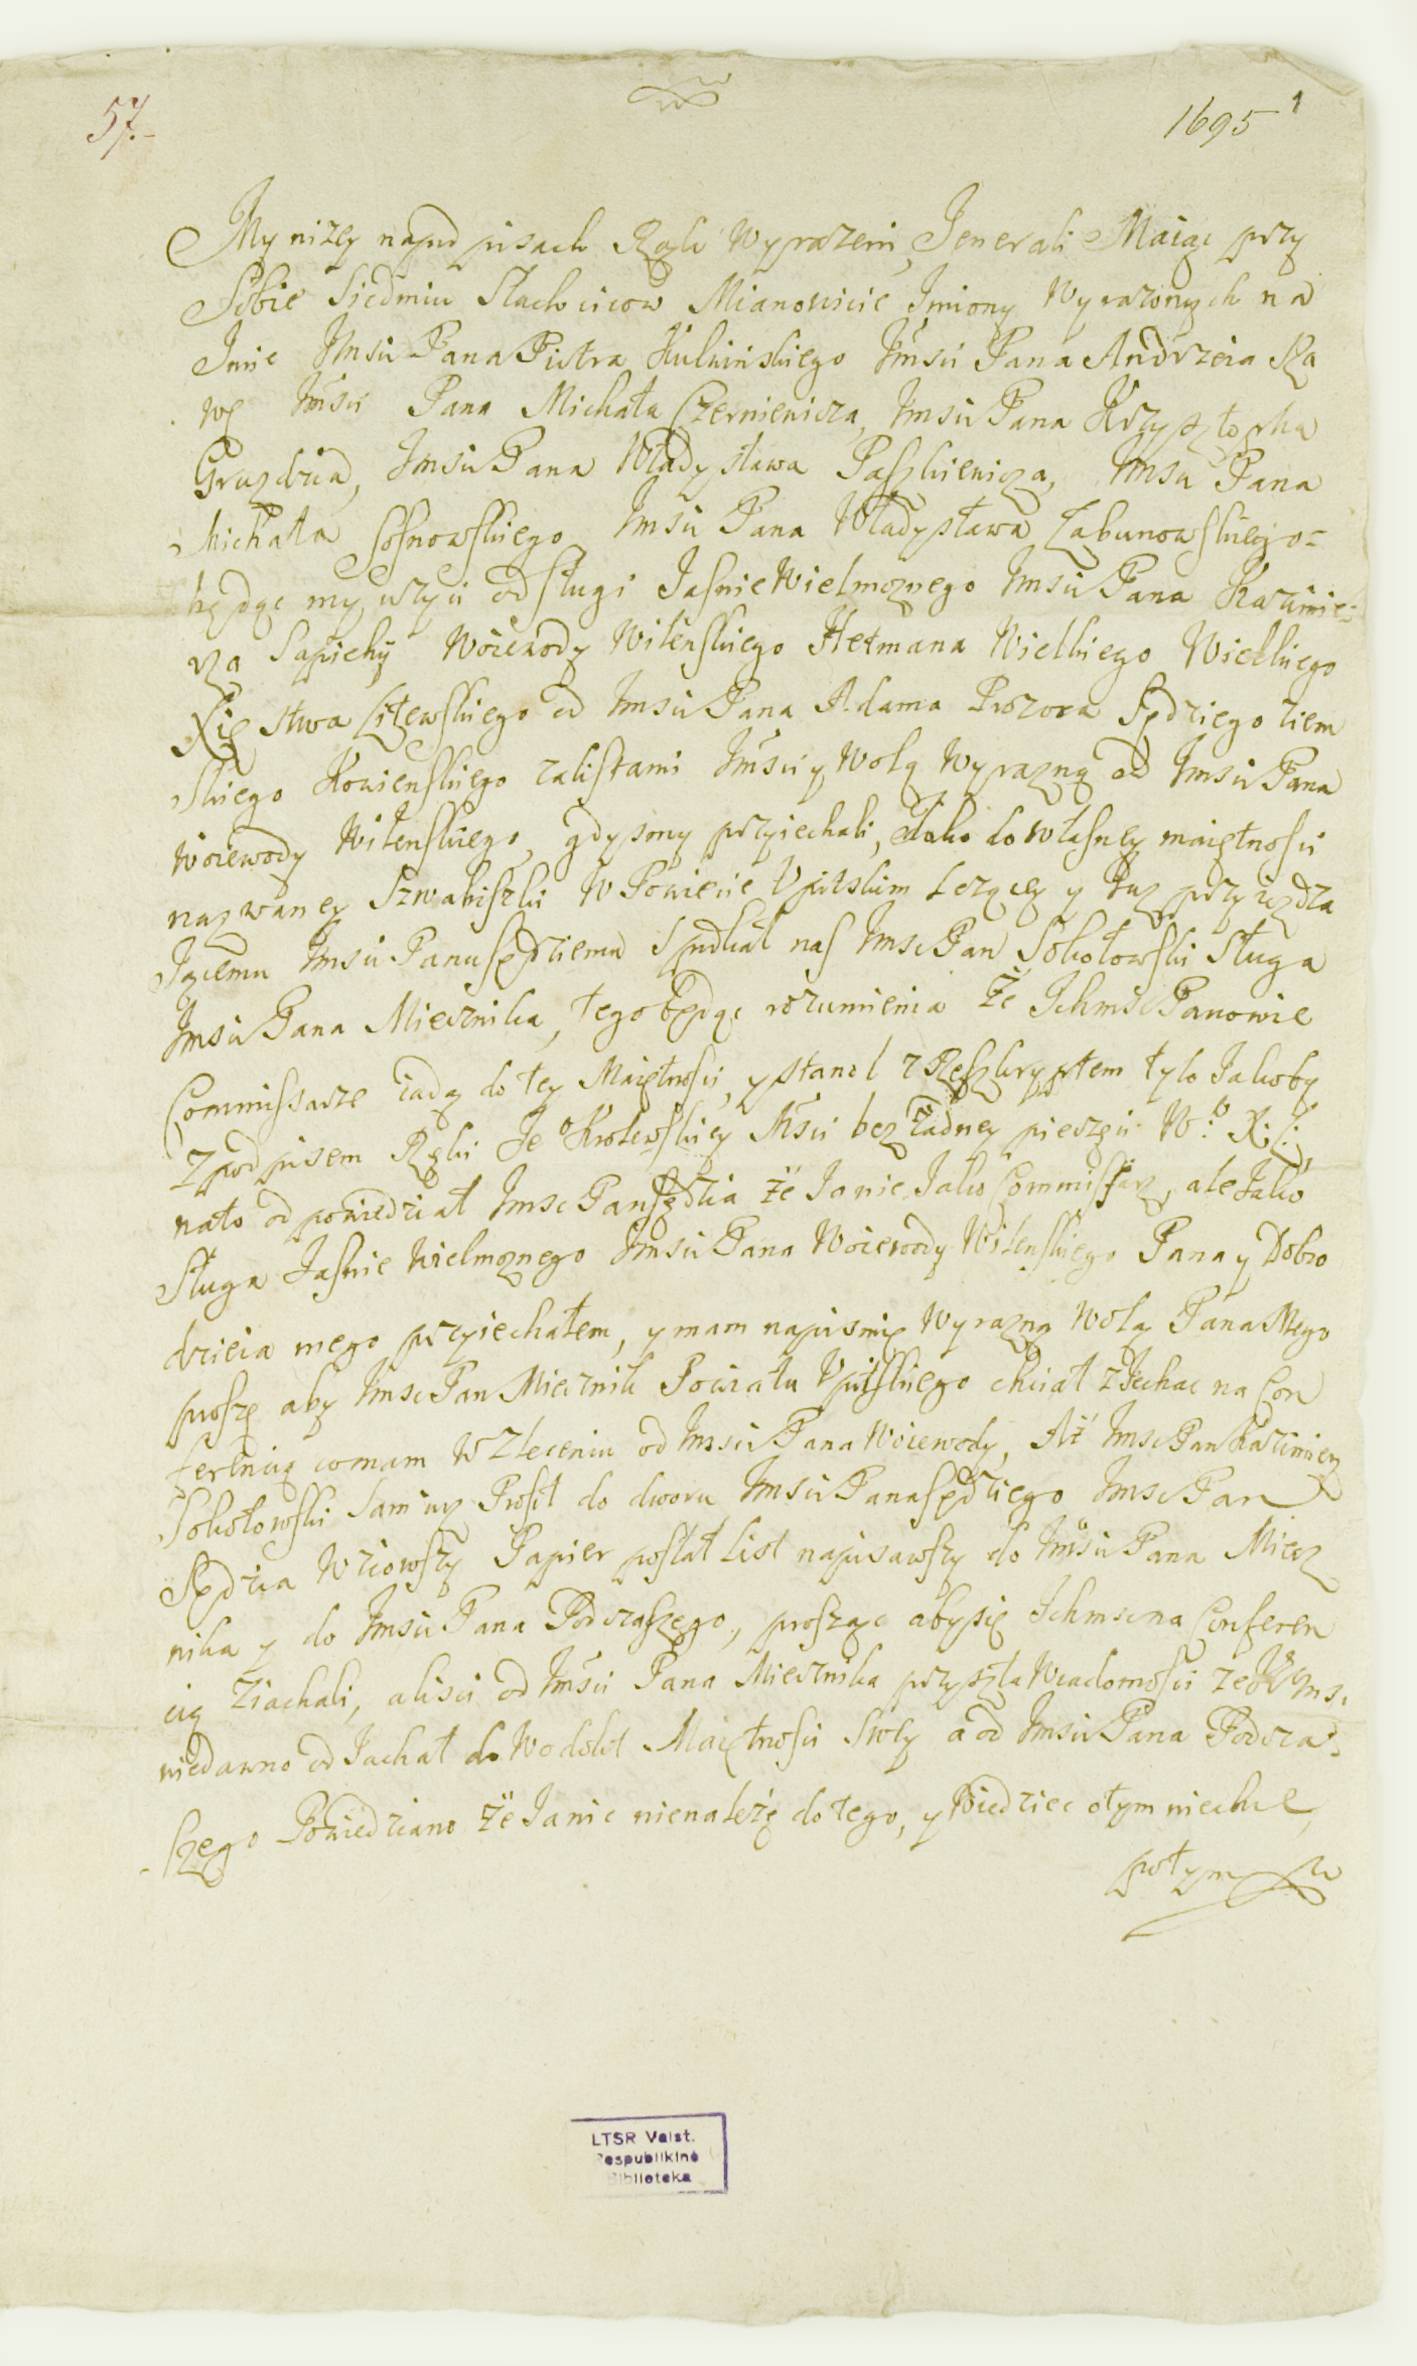 57.
1695 1
My niżey napod pisach Ręk Wyrażeni, Jenerali Maiąc przy
Sobie siedmiu Slachcicow Mianowicie Imiony Wyrażonych na
Imie Imsci Pana Piotra Kulwinskiego Imsci Pana Andrzeia Ra
wę Imsci Pana Michała Czerniewicza, Imsci Pana Krzysztopha
Gruzdzia, Imsci Pana Władysława Paszkiewicza, Imsci Pana
Michała Sosnowskiego Imsci Pana Władysława Łabunowskiego=
będąc my użyci od sługi Jasnie Wielmoznego Imsci Pana Kazimie=
rza Sapiehy Woiewody Wilenskiego Hetmana Wielkiego Wielkiego
Xięstwa Litewskiego od Imsci Pana Adama Prozora Sędziego ziem
skiego Kowienskiego zalistami Imsci y Wolą Wyrazną od Imsci Pana
Woiewody Wilenskiego, gdysmy przyiechali, iako do własney maiętnosci
nazwaney Szwabiszki W Powiecie Upitskim Lezącey y tuz przyiezdza
Iącemu Imsci Panu Sędziemu Spodkał nas Imsc Pan Sokołowski Sługa
Imsci Pana Miecznika, tego będąc rozumienia że Ichmsc Panowie
Commissarze iadą do tey Maiętnosci, y stanoł z Reszkryptem tylo Jakoby
Zpodpisem Ręki Je° Krolewskiey Msci bez żadney pieczęci W: X: L:
nato odpowiedział Imsc Pan Sędzia że Ia nie Jako Commissarz, ale Jako
Sługa Jasnie Wielmoznego Imsci Pana Woiewody Wilenskiego Pana y Dobro
dzieia mego przyiechałem, y mam napismie Wyrazną Wolą Pana Mego
proszę aby Imsc Pan Miecznik Powiatu Upitskiego chciał ziechac na Con
ferencią co mam W zleceniu od Imsci Pana Woiewody, Aż Imsc Pan Kazimierz
Sokołowski Sam iuz Prosił do dworu Imsci Pana Sędziego Imsc Pan
Sędzia Wziowszy Papier posłał List napisawszy do Imsci Pana Miecz
nika y do Imsci Pana Podczaszego, prosząc aby się Ichmsc na Conferen
cią Ziachali, alisci od Imsci Pana Miecznika przyszła Wiadomosci że Imsc
niedawno odiachał do Wodokt Maiętnosci Swey a od Imsci Pana Podcza=
szego Powiedziano że Ia nic nienależę do tego, y Wiedziec otym niechcę,
potym
LTSR Valst.
Respublikinė
Biblioteka